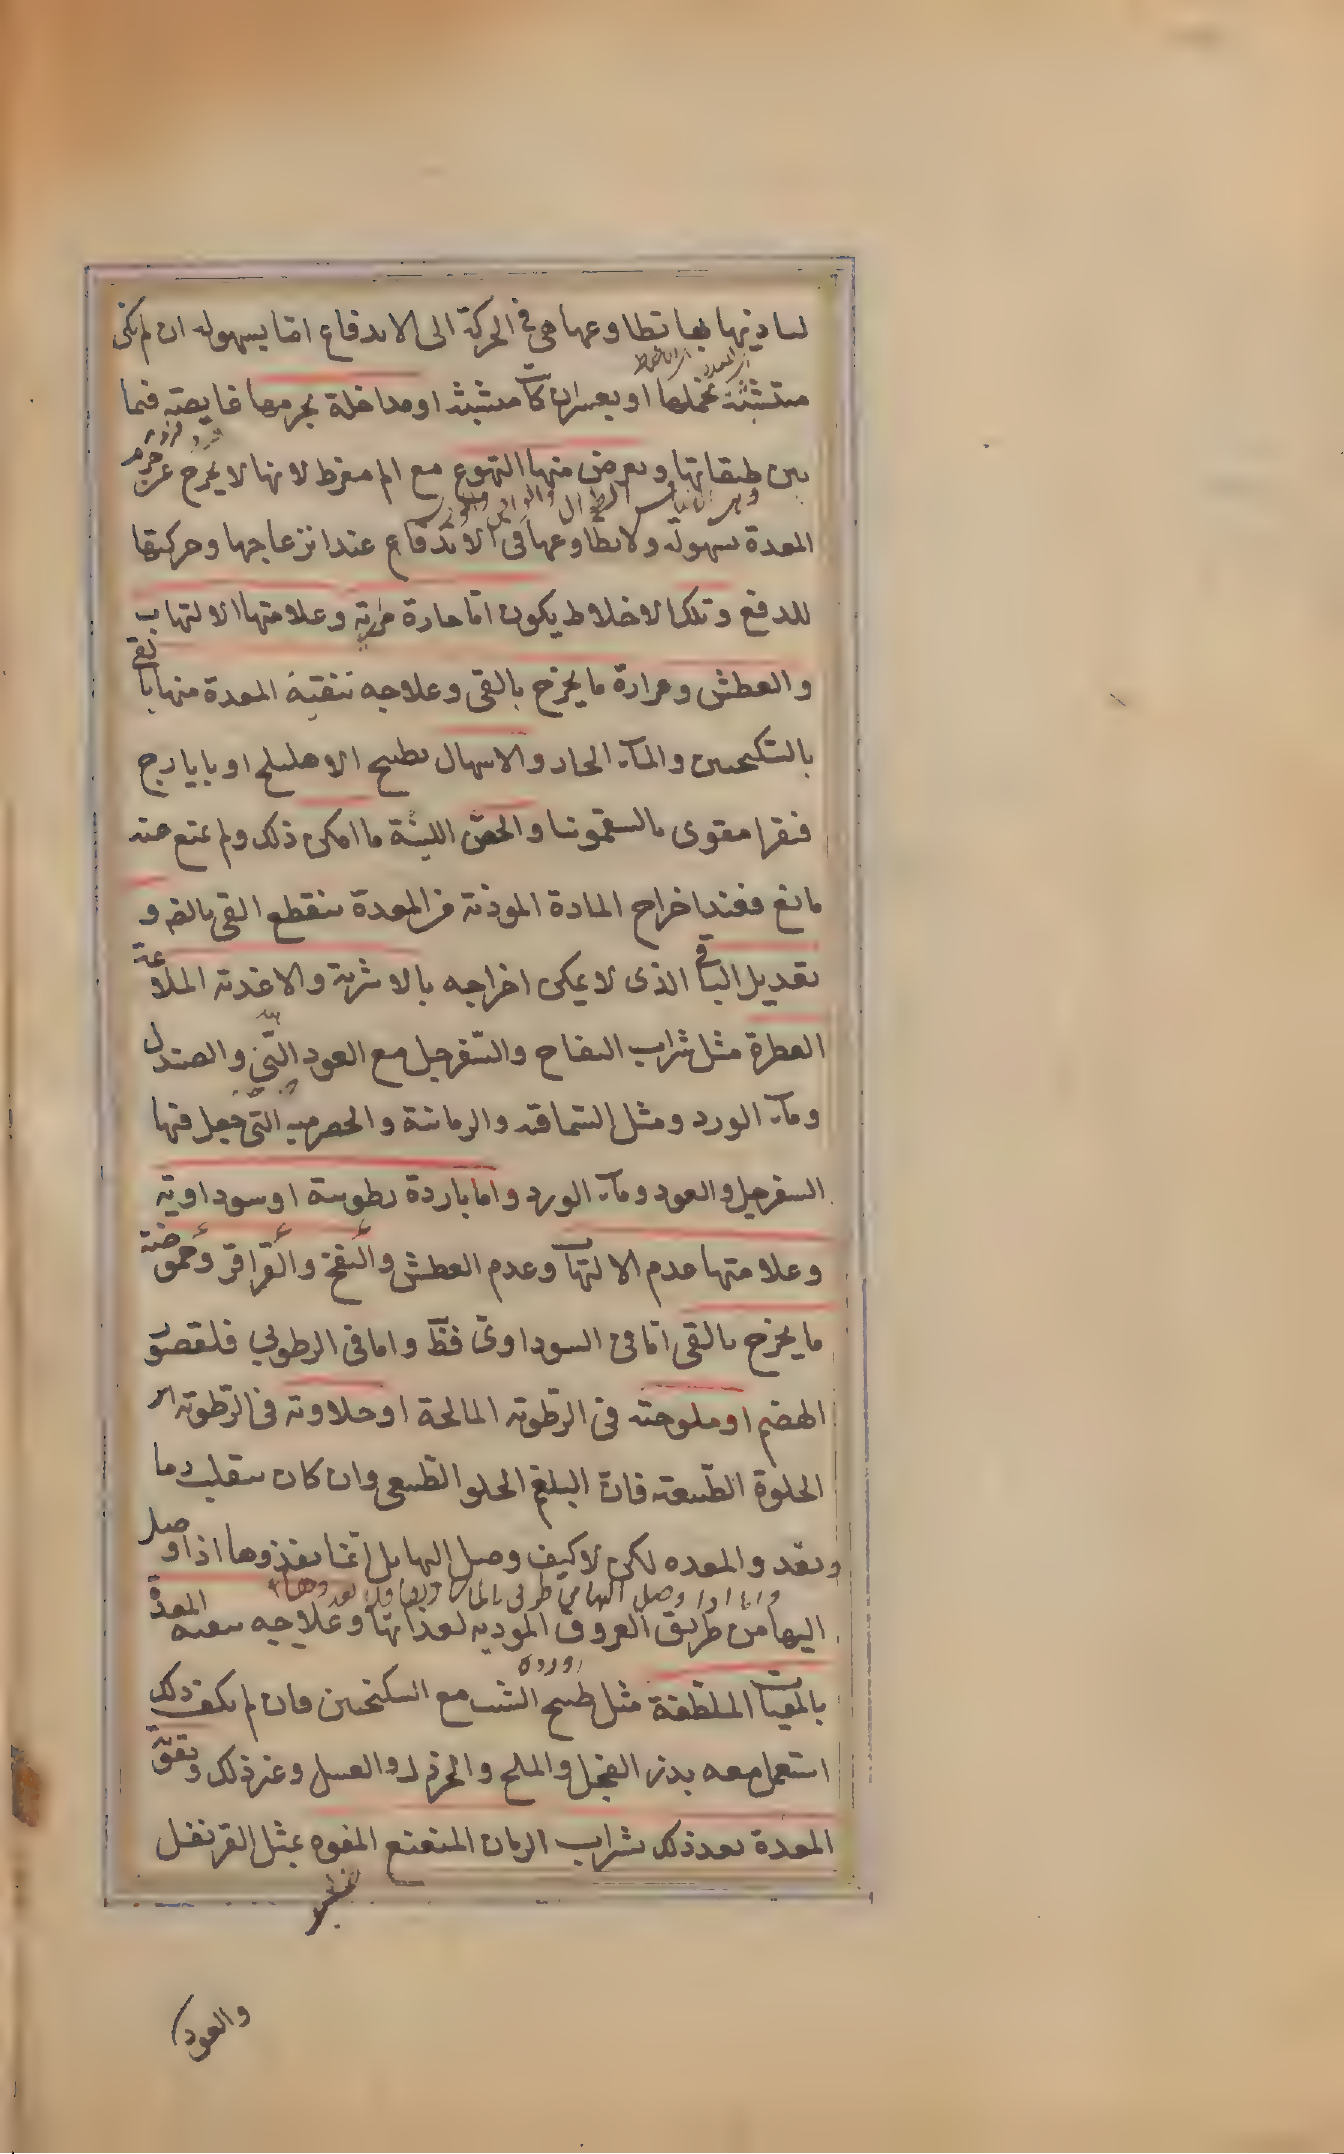 لتاذيها بها تطاوعها هى فى الحركة الى الاندفاع اما بسهولة ان لم تكن
متشبثة بخملها او بعسر ان كانت متشبثة او مداخلة لجرمها غايصة فيما
بين طبقاتها ويعرض منها التهوع مع الم مفرط لانها لا يخرج عن جرم
المعدة بسهولة ولا يطاوعها فى الاندفاع عند انزعاجها وحركتها
للدفع وتلك الاخلاط يكون اما حارة مرية وعلامتها الالتهاب
والعطش ومرارة ما يخرج بالقى وعلاجه تنقية المعدة منها بالقى
بالسكنجبين والماء الحار والاسهال بطبيخ الاهليلج او بايارج
فيقرا مقوى بالسقمونيا والحقن اللينة ما امكن ذلك ولم يمنع منه
مانع فعند اخراج المادة الموذية من المعدة ينقطع القى بالمرة و
تعديل الباقى الذى لا يمكن اخراجه بالاشربة والاغذية الملائمة
العطرة مثل شراب التفاح والسفرجل مع العود النى والصندل
وماء الورد ومثل السماقية والرمانية والحصرمية التى جعل فيها
السفرجل والعود وماء الورد واما باردة رطوبية او سوداوية
وعلامتها عدم الالتهاب وعدم العطش والنفخ والقراقر وحموضة
ما يخرج بالقى اما فى السوداوى فظ واما فى الرطوبى فلقصور
الهضم او ملوحته فى الرطوبة المالحة او حلاوته فى الرطوبة
الحلوة الطبيعية فان البلغم الحلو الطبيعى وان كان ينقلب دما
ويغذو المعدة لكن لا كيف وصل اليها بل انما يغذوها اذا وصل
اليها من طريق العروق المودية لغذائها وعلاجه تنقية المعدة
بالمقيات الملطفة مثل طبيخ الشبت مع السكنجبين فان لم يكف ذلك
استعمل معه بذر الفجل والملح والخردل والعسل وغير ذلك وتقوى
المعدة بعد ذلك بشراب الرمان المنعنع المفوه بمثل القرنفل
والعود